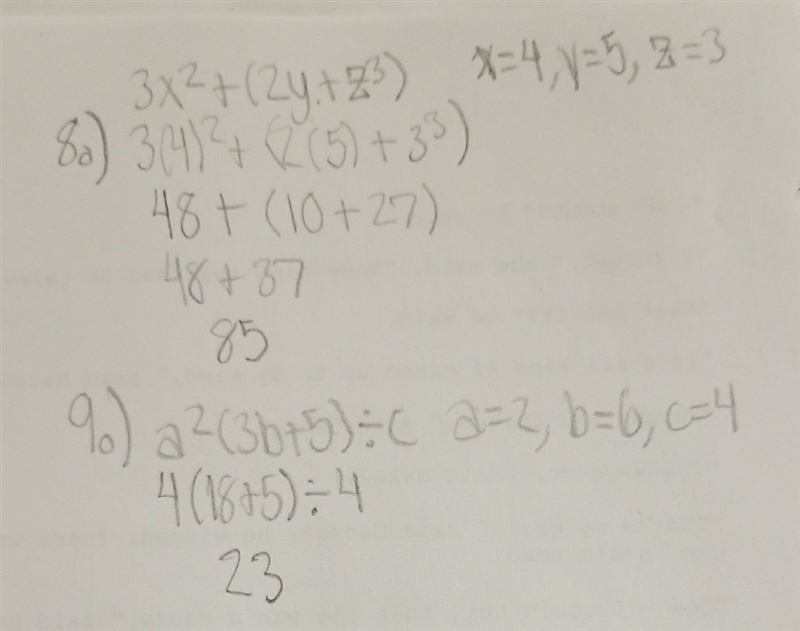 3x²+(2y+z³) x=4, y=5, z=3
8a) 3(4)²+ (2(5)+3³)
48+(10+27)
48+37
85
9a) a²(3b+5)÷c a=2, b=6, c=4
4(18+5)÷4
23